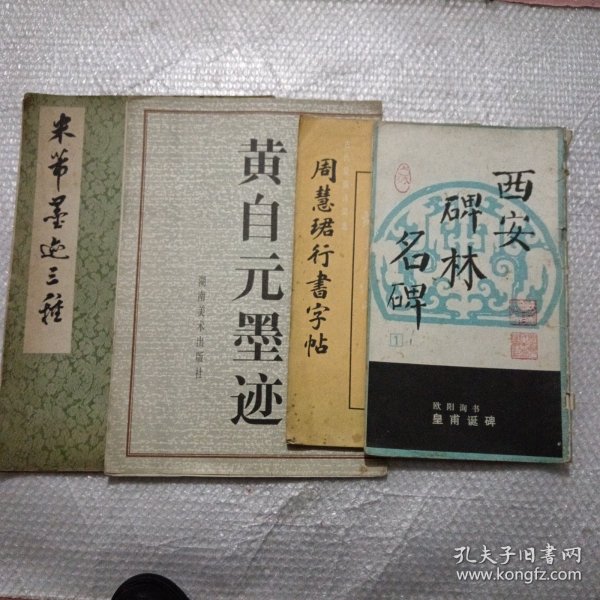 米芾墨迹三种
黄自元墨迹
湖南美术出版社
周慧珺行書字帖
西安
碑林
名碑
1
欧阳询书
皇甫诞碑
孔夫子旧書网
www.kongfz.com